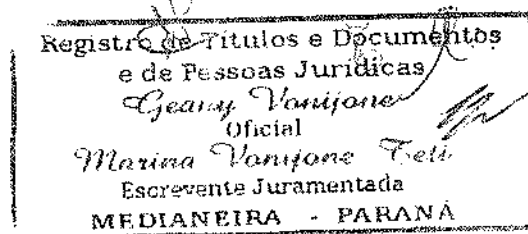 Registro de Títulos e Documentos
e de Pessoas Jurídicas
Geany Vanijone
Oficial
Marina Vanijone
Escrevente Juramentada
MEDIANEIRA - PARANÁ